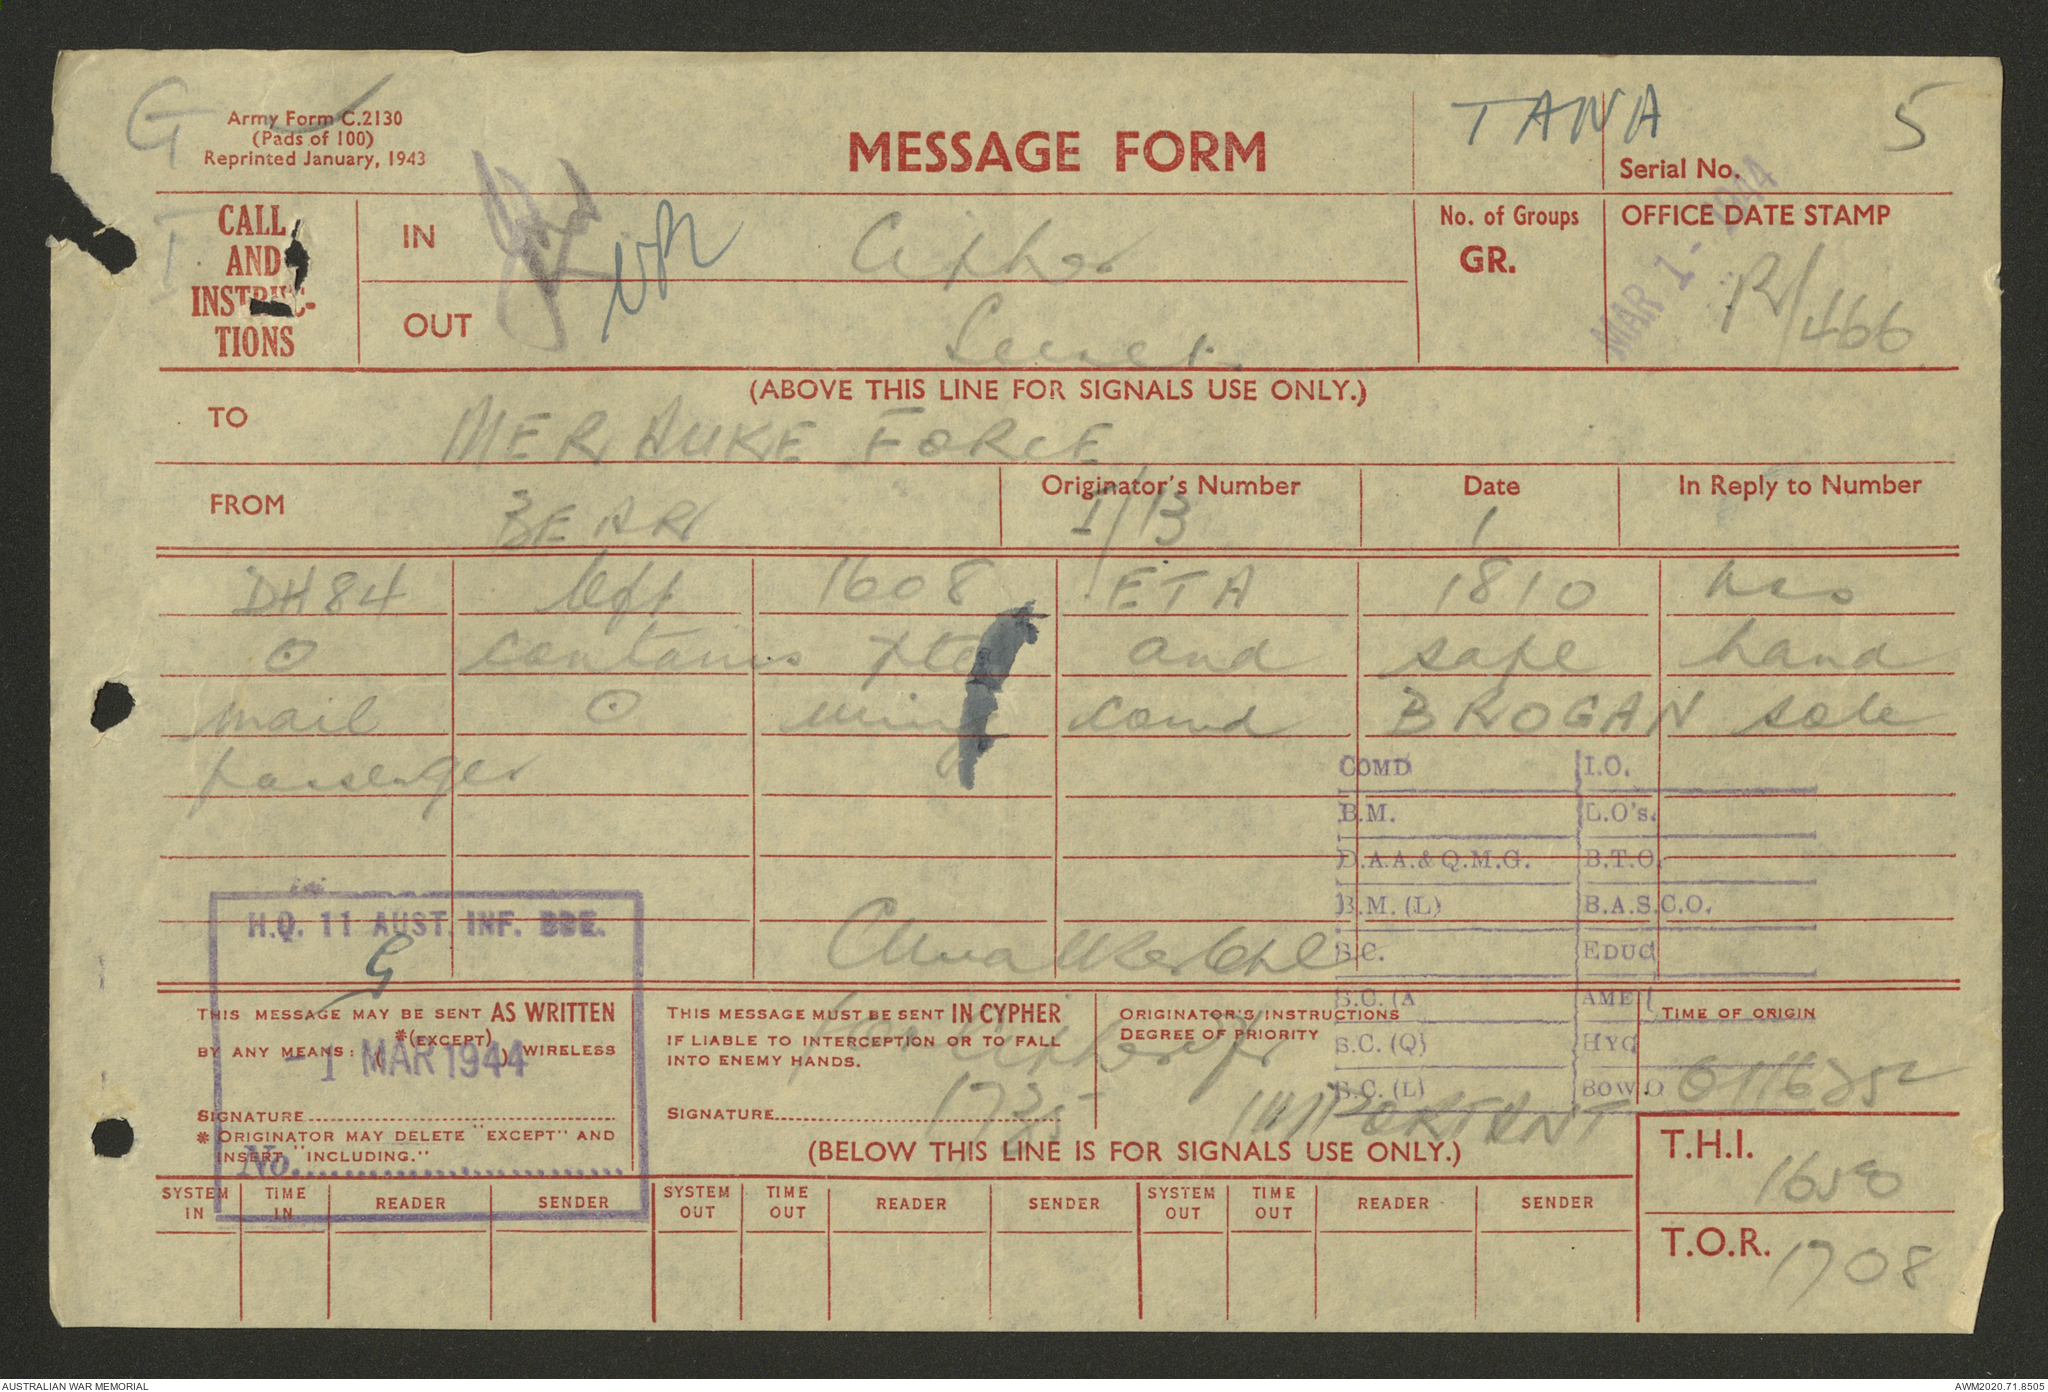 G
Army Form C.2130
(Pads of 100)
Reprinted January, 1943
MESSAGE FORM
TANA
5
Serial No.
CALL
AND
INSTRUC-
TIONS
I
IN
OUT
Cipher
Secret
No. of Groups
GR.
OFFICE DATE STAMP
MAR 1 - 1944
R/466
(ABOVE THIS LINE FOR SIGNALS USE ONLY.)
TO
MERAUKE FORCE
FROM
BEAR
Originator's Number
I/B
Date
1
In Reply to Number
DH84 left 1608 ETA 1810 hrs
⊙ contains and safe hand
mail ⊙ comd BROGAN sole
passenger
COMD I.O.
B.M. L.O's.
D.A.A.&Q.M.G. B.T.O.
B.M. (L) B.A.S.C.O.
S.C. EDUC
S.C. (A AME
S.C. (Q) HYG
S.C. (L) BOW O
H.Q. 11 AUST. INF. BDE.
G
- 1 MAR 1944
No.
THIS MESSAGE MAY BE SENT AS WRITTEN
*(EXCEPT)
BY ANY MEANS: ( ) WIRELESS
SIGNATURE
* ORIGINATOR MAY DELETE "EXCEPT" AND
INSERT "INCLUDING."
THIS MESSAGE MUST BE SENT IN CYPHER
IF LIABLE TO INTERCEPTION OR TO FALL
INTO ENEMY HANDS.
SIGNATURE
1725
ORIGINATOR'S INSTRUCTIONS
DEGREE OF PRIORITY
IMPORTANT
TIME OF ORIGIN
(BELOW THIS LINE IS FOR SIGNALS USE ONLY.)
T.H.I.
1650
T.O.R.
1708
SYSTEM IN TIME IN READER SENDER SYSTEM OUT TIME OUT READER SENDER SYSTEM OUT TIME OUT READER SENDER
AUSTRALIAN WAR MEMORIAL
AWM2020.71.8505